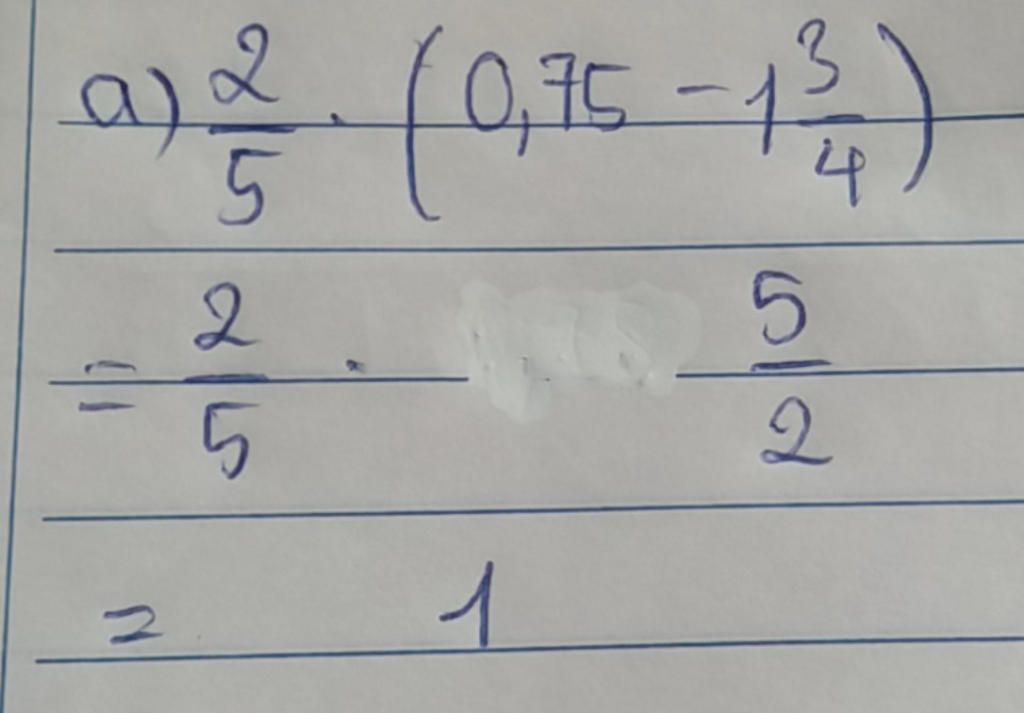 a) 2/5 . (0,75 - 1 3/4)
= 2/5 . 5/2
= 1